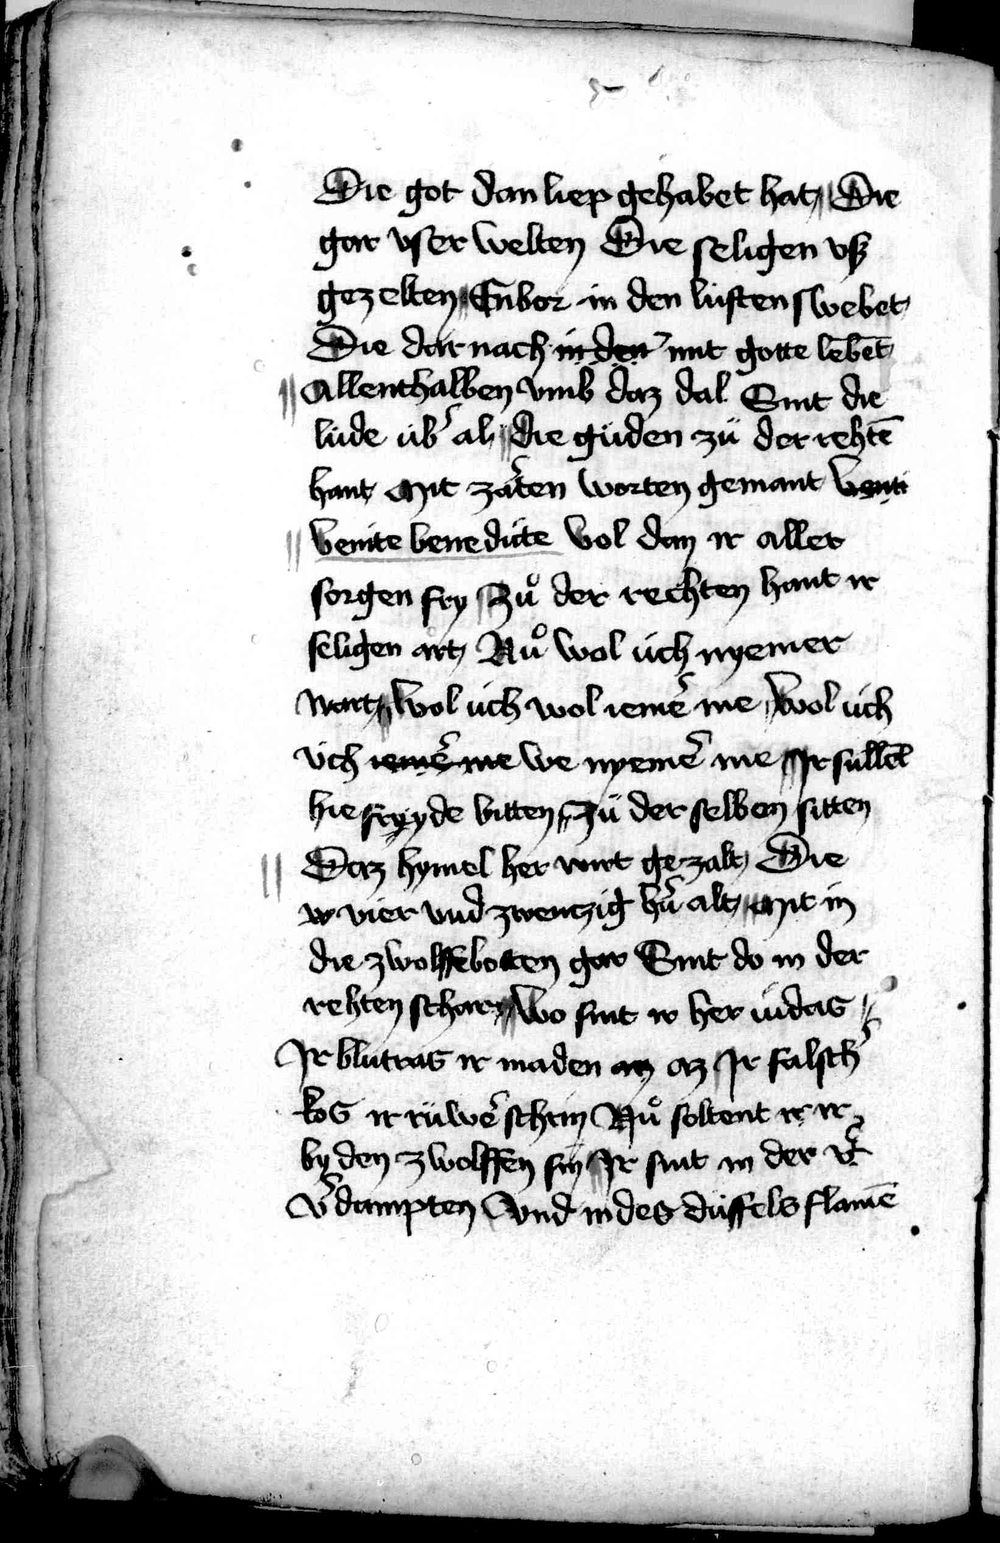 Die got dan liep gehabet hat Die
gar vſer welten Die ſeligen vß
gezelten Enbor in den lüften ſwebet
Die dar nach in den mit gotte lebēt
Allenthalben vmb daz dal Sint die
lüde übˀ al die güden zü der rehtē
hant Mit zarten worten gemant venite
venite benedicte Wol dan ir aller
ſorgen fry Zuͦ der rechten hant ir
ſeligen art Nuͦ wol üch nyemer
wart Wol üch wol iemeˀ me Wol üch
üch iemeˀ me we nyemeˀ me Ir ſüllēt
hie fryde bitten Zü der ſelben ſitten
Daz hymel her wirt gezalt Die
w vier vnd zwentzig hˀn alt Mit in
die zwolffebotten gar Sint do in der
rehten ſchar Wo ſint ir her iüdas
Ir blütras ir maden az Ir falſchˀ
kos ir rüweˀ ſchrin Nuͦ ſoltent ir ir
by den zwolffen ſin Ir ſint in der vˀ
vˀdampten Vnd in des düffels flamē